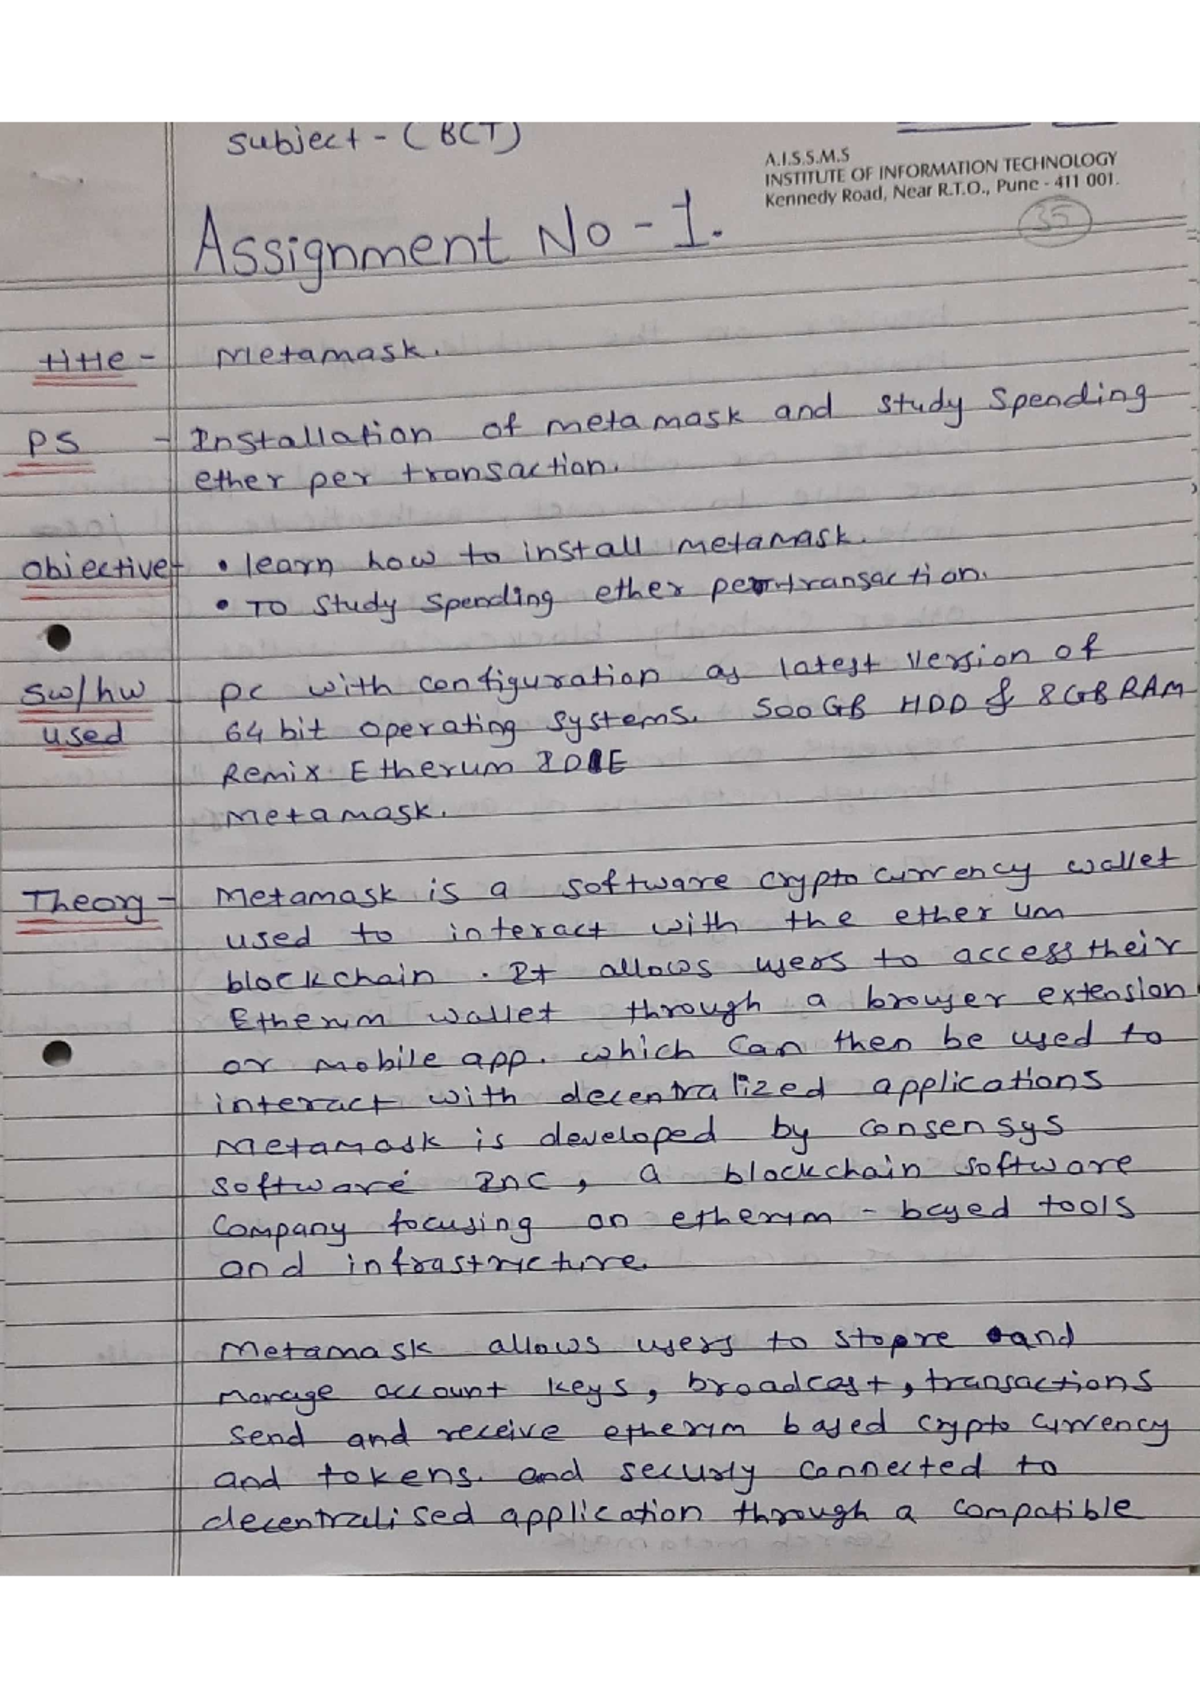 Subject - (BCT)
A.I.S.S.M.S
INSTITUTE OF INFORMATION TECHNOLOGY
Kennedy Road, Near R.T.O., Pune - 411 001.
35
Assignment No - 1.
title - Metamask.
PS - Installation of metamask and study Spending
ether per transaction.
Objective - • learn how to install metamask.
• To Study Spending ether per transaction.
SW/hw used
pc with configuration as latest version of
64 bit operating systems. 500GB HDD & 8GB RAM
Remix Etherum IDE
Metamask.
Theory - Metamask is a software crypto currency wallet
used to interact with the etherum
blockchain. It allows users to access their
Etherum wallet through a browser extension
or mobile app. which can then be used to
interact with decentralized applications
Metamask is developed by consensys
software Inc, a blockchain software
Company focusing on etherum - based tools
and infrastructure.
Metamask allows users to stopre and
manage account keys, broadcast, transactions
send and receive etherum based crypto currency
and tokens. and securly connected to
decentralised application through a compatible